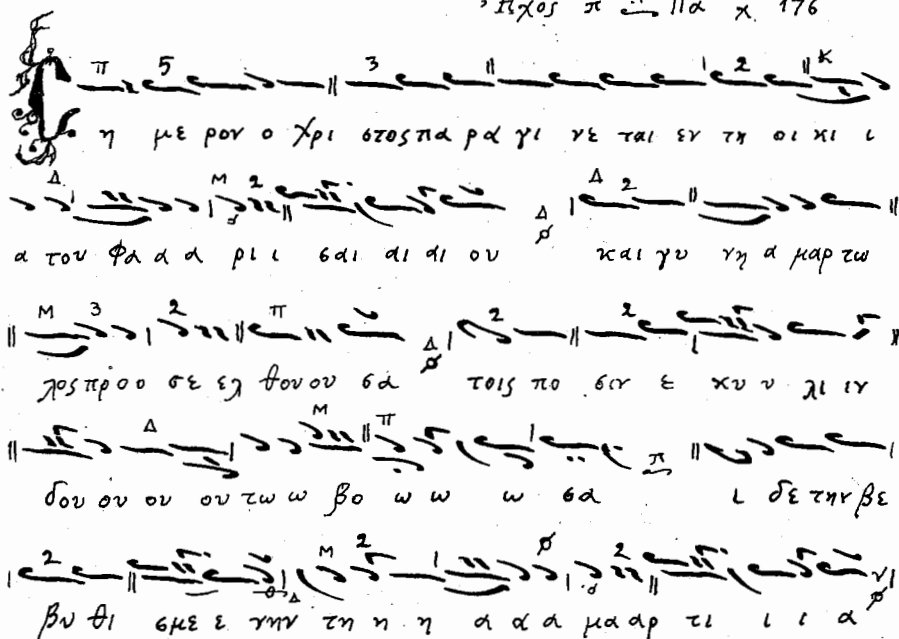 Ἦχος π Πα χ 176
η με ρον ο Χρι στος πα ρα γι νε ται εν τη οι κι ι
α του Φα α α ρι ι σαι αι αι ου και γυ νη α μαρ τω
λος προ ο σε ελ θου ου σα τοις πο σιν ε κυ υ λι ιν
δου ου ου ου τω ω βο ω ω ω σα ι δε την βε
βυ θι σμε ε νην τη η η α α α μα αρ τι ι ι α